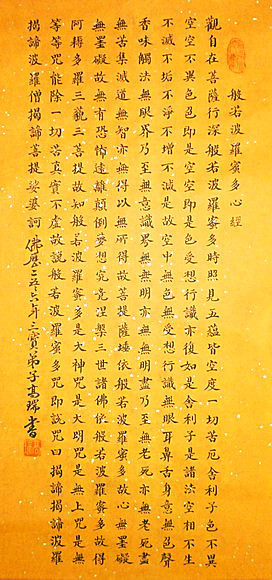 般若波羅蜜多心經
觀自在菩薩行深般若波羅蜜多時照見五蘊皆空度一切苦厄舍利子色不異
空空不異色色即是空空即是色受想行識亦復如是舍利子是諸法空相不生
不滅不垢不淨不增不減是故空中無色無受想行識無眼耳鼻舌身意無色聲
香味觸法無眼界乃至無意識界無無明亦無無明盡乃至無老死亦無老死盡
無苦集滅道無智亦無得以無所得故菩提薩埵依般若波羅蜜多故心無罣礙
無罣礙故無有恐怖遠離顛倒夢想究竟涅槃三世諸佛依般若波羅蜜多故得
阿耨多羅三藐三菩提故知般若波羅蜜多是大神咒是大明咒是無上咒是無
等等咒能除一切苦真實不虛故說般若波羅蜜多咒即說咒曰揭諦揭諦波羅
揭諦波羅僧揭諦菩提娑婆訶 佛歷二五六年三寶弟子高書